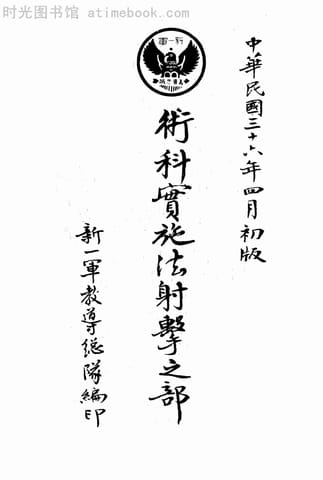 时光图书馆 atimebook.com
軍一新
中華民國三十六年四月初版
術科實施法射擊之部
新一軍教導總隊編印